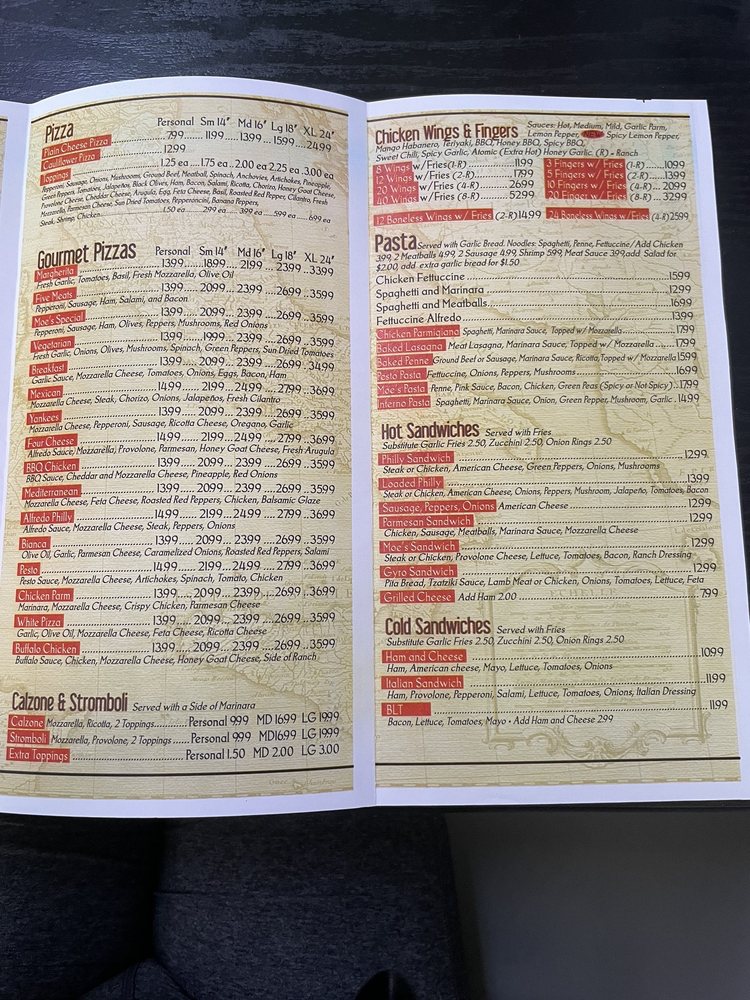 Pizza
Personal Sm 14" Md 16" Lg 18" XL 24"
Plain Cheese Pizza 7.99 11.99 13.99 15.99 24.99
Cauliflower Pizza 12.99
Toppings 1.25 ea 1.75 ea 2.00 ea 2.25 ea 3.00 ea
Pepperoni, Sausage, Onions, Mushrooms, Ground Beef, Meatball, Spinach, Anchovies, Artichokes, Pineapple,
Green Peppers, Tomatoes, Jalapeños, Black Olives, Ham, Bacon, Salami, Ricotta, Chorizo, Honey Goat Cheese,
Provolone Cheese, Cheddar Cheese, Arugula, Egg, Feta Cheese, Basil, Roasted Red Pepper, Cilantro, Fresh
Mozzarella, Parmesan Cheese, Sun Dried Tomatoes, Pepperoncini, Banana Peppers,
Steak, Shrimp, Chicken 1.50 ea 2.99 ea 3.99 ea 5.99 ea 6.99 ea
Gourmet Pizzas Personal Sm 14" Md 16" Lg 18" XL 24"
Margherita 13.99 18.99 21.99 23.99 33.99
Fresh Garlic, Tomatoes, Basil, Fresh Mozzarella, Olive Oil
Five Meats 13.99 20.99 23.99 26.99 35.99
Pepperoni, Sausage, Ham, Salami, and Bacon
Moe's Special 13.99 20.99 23.99 26.99 35.99
Pepperoni, Sausage, Ham, Olives, Peppers, Mushrooms, Red Onions
Vegetarian 13.99 19.99 23.99 26.99 35.99
Fresh Garlic, Onions, Olives, Mushrooms, Spinach, Green Peppers, Sun Dried Tomatoes
Breakfast 13.99 20.99 23.99 26.99 34.99
Garlic Sauce, Mozzarella Cheese, Tomatoes, Onions, Eggs, Bacon, Ham
Mexican 14.99 21.99 24.99 27.99 36.99
Mozzarella Cheese, Steak, Chorizo, Onions, Jalapeños, Fresh Cilantro
Yankees 13.99 20.99 23.99 26.99 35.99
Mozzarella Cheese, Pepperoni, Sausage, Ricotta Cheese, Oregano, Garlic
Four Cheese 14.99 21.99 24.99 27.99 36.99
Alfredo Sauce, Mozzarella, Provolone, Parmesan, Honey Goat Cheese, Fresh Arugula
BBQ Chicken 13.99 20.99 23.99 26.99 35.99
BBQ Sauce, Cheddar and Mozzarella Cheese, Pineapple, Red Onions
Mediterranean 13.99 20.99 23.99 26.99 35.99
Mozzarella Cheese, Feta Cheese, Roasted Red Peppers, Chicken, Balsamic Glaze
Alfredo Philly 14.99 21.99 24.99 27.99 36.99
Alfredo Sauce, Mozzarella Cheese, Steak, Peppers, Onions
Bianca 13.99 20.99 23.99 26.99 35.99
Olive Oil, Garlic, Parmesan Cheese, Caramelized Onions, Roasted Red Peppers, Salami
Pesto 14.99 21.99 24.99 27.99 36.99
Pesto Sauce, Mozzarella Cheese, Artichokes, Spinach, Tomato, Chicken
Chicken Parm 13.99 20.99 23.99 26.99 36.99
Marinara, Mozzarella Cheese, Crispy Chicken, Parmesan Cheese
White Pizza 13.99 20.99 23.99 26.99 35.99
Garlic, Olive Oil, Mozzarella Cheese, Feta Cheese, Ricotta Cheese
Buffalo Chicken 13.99 20.99 23.99 26.99 35.99
Buffalo Sauce, Chicken, Mozzarella Cheese, Honey Goat Cheese, Side of Ranch
Calzone & Stromboli Served with a Side of Marinara
Calzone Mozzarella, Ricotta, 2 Toppings Personal 9.99 MD 16.99 LG 19.99
Stromboli Mozzarella, Provolone, 2 Toppings Personal 9.99 MD 16.99 LG 19.99
Extra Toppings Personal 1.50 MD 2.00 LG 3.00
Chicken Wings & Fingers Sauces: Hot, Medium, Mild, Garlic Parm,
Lemon Pepper, NEW Spicy Lemon Pepper,
Mango Habanero, Teriyaki, BBQ, Honey BBQ, Spicy BBQ,
Sweet Chili, Spicy Garlic, Atomic (Extra Hot) Honey Garlic. (R) = Ranch
8 Wings w/Fries (1-R) 11.99 3 Fingers w/ Fries (1-R) 10.99
12 Wings w/Fries (2-R) 17.99 5 Fingers w/ Fries (2-R) 13.99
20 Wings w/Fries (4-R) 26.99 10 Fingers w/ Fries (4-R) 20.99
40 Wings w/Fries (8-R) 52.99 20 Finger w/ Fries (8-R) 32.99
12 Boneless Wings w/ Fries (2-R) 14.99 24 Boneless Wings w/ Fries (4-R) 25.99
Pasta Served with Garlic Bread. Noodles: Spaghetti, Penne, Fettuccine / Add Chicken
3.99, 2 Meatballs 4.99, 2 Sausage 4.99, Shrimp 5.99, Meat Sauce 3.99, add Salad for
$2.00, add extra garlic bread for $1.50
Chicken Fettuccine 15.99
Spaghetti and Marinara 12.99
Spaghetti and Meatballs 16.99
Fettuccine Alfredo 13.99
Chicken Parmigiana Spaghetti, Marinara Sauce, Topped w/ Mozzarella 17.99
Baked Lasagna Meat Lasagna, Marinara Sauce, Topped w/ Mozzarella 17.99
Baked Penne Ground Beef or Sausage, Marinara Sauce, Ricotta, Topped w/ Mozzarella 15.99
Pesto Pasta Fettuccine, Onions, Peppers, Mushrooms 16.99
Moe's Pasta Penne, Pink Sauce, Bacon, Chicken, Green Peas (Spicy or Not Spicy) 17.99
Inferno Pasta Spaghetti, Marinara Sauce, Onion, Green Pepper, Mushroom, Garlic 14.99
Hot Sandwiches Served with Fries
Substitute Garlic Fries 2.50, Zucchini 2.50, Onion Rings 2.50
Philly Sandwich 12.99
Steak or Chicken, American Cheese, Green Peppers, Onions, Mushrooms
Loaded Philly 13.99
Steak or Chicken, American Cheese, Onions, Peppers, Mushroom, Jalapeño, Tomatoes, Bacon
Sausage, Peppers, Onions American Cheese 12.99
Parmesan Sandwich 12.99
Chicken, Sausage, Meatballs, Marinara Sauce, Mozzarella Cheese
Moe's Sandwich 12.99
Steak or Chicken, Provolone Cheese, Lettuce, Tomatoes, Bacon, Ranch Dressing
Gyro Sandwich 12.99
Pita Bread, Tzatziki Sauce, Lamb Meat or Chicken, Onions, Tomatoes, Lettuce, Feta
Grilled Cheese Add Ham 2.00 7.99
Cold Sandwiches Served with Fries
Substitute Garlic Fries 2.50, Zucchini 2.50, Onion Rings 2.50
Ham and Cheese 10.99
Ham, American cheese, Mayo, Lettuce, Tomatoes, Onions
Italian Sandwich 11.99
Ham, Provolone, Pepperoni, Salami, Lettuce, Tomatoes, Onions, Italian Dressing
BLT 11.99
Bacon, Lettuce, Tomatoes, Mayo - Add Ham and Cheese 2.99